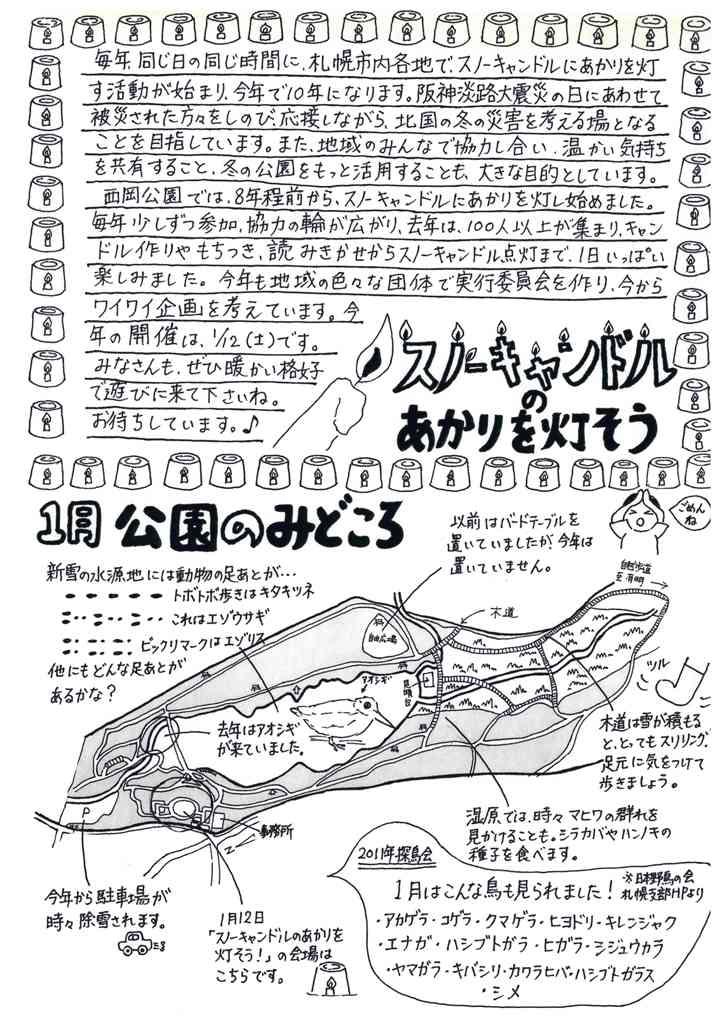 毎年、同じ日の同じ時間に、札幌市内各地で、スノーキャンドルにあかりを灯
す活動が始まり、今年で10年になります。阪神淡路大震災の日にあわせて
被災された方々をしのび、応援しながら、北国の冬の災害を考える場となる
ことを目指しています。また、地域のみんなで協力し合い、温かい気持ち
を共有すること、冬の公園をもっと活用することも、大きな目的としています。
西岡公園では、8年程前から、スノーキャンドルにあかりを灯し始めました。
毎年少しずつ参加、協力の輪が広がり、去年は、100人以上が集まり、キャン
ドル作りやもちつき、読みきかせからスノーキャンドル点灯まで、1日いっぱい
楽しみました。今年も地域の色々な団体で実行委員会を作り、今から
ワイワイ企画を考えています。今
年の開催は、1/12(土)です。
みなさんも、ぜひ暖かい格好
で遊びに来て下さいね。
お待ちしています。♪
スノーキャンドル
の
あかりを灯そう
1月 公園のみどころ
以前はバードテーブルを
置いていましたが、今年は
置いていません。
ごめん
ね
新雪の水源地には動物の足あとが…
トボトボ歩きはキタキツネ
これはエゾウサギ
ビックリマークはエゾリス
他にもどんな足あとが
あるかな?
自由広場
木道
自然歩道
至有明
アオシギ
展望台
ツル
去年はアオシギ
が来ていました。
木道は雪が積もる
と、とってもスリリング。
足元に気をつけて
歩きましょう。
湿原では、時々マヒワの群れを
見かけることも。シラカバやハンノキの
種子を食べます。
P
事務所
Z
今年から駐車場が
時々除雪されます。
1月12日
「スノーキャンドルのあかりを
灯そう!」の会場は
こちらです。
2011年探鳥会
1月はこんな鳥も見られました!
※日本野鳥の会
札幌支部HPより
・アカゲラ・コゲラ・クマゲラ・ヒヨドリ・キレンジャク
・エナガ・ハシブトガラ・ヒガラ・シジュウカラ
・ヤマガラ・キバシリ・カワラヒバ・ハシブトガラス
・シメ